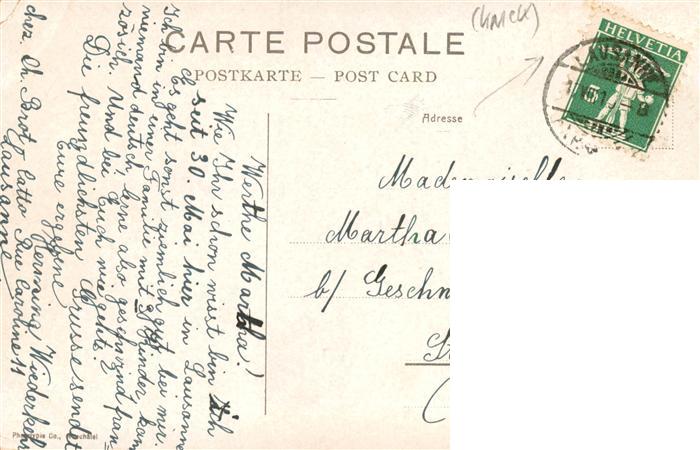 (KNICK)
CARTE POSTALE
POSTKARTE — POST CARD
Adresse
HELVETIA
LAUSANNE
5
Mademoiselle
Martha
b/ Geschw
Werthe Martha!
Wie Ihr schon wisst bin ich
seit 30. Mai hier in Lausanne
Es geht sonst ziemlich gut bei mir.
Ich bin in einer Familie mit 8 Kinder, kann
niemand deutsch, lerne also geschwind fran-
zösich. Und bei Euch wie gehts?
Die freundlichsten Grüsse sendet
Eure ergebene
Wiederkehr
chez. Ch. Borot Latto Rue Caroline 11
Lausanne
Phototypie Co., Neuchâtel